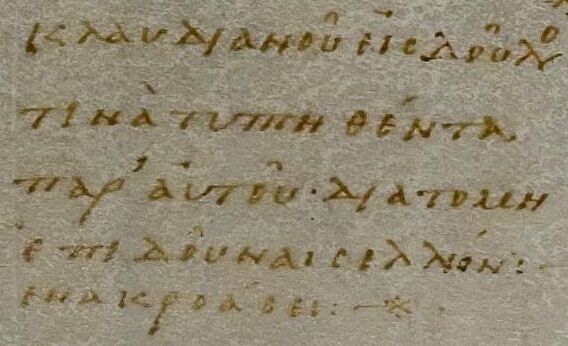 κλαυδιανοῦ εἰς δοῦλον
τινὰ τυπηθέντα
παρ' αὐτοῦ· διὰ τὸ μὴ
ἐπιδοῦναι σελλίον:
ἐν ἀκροάσει: